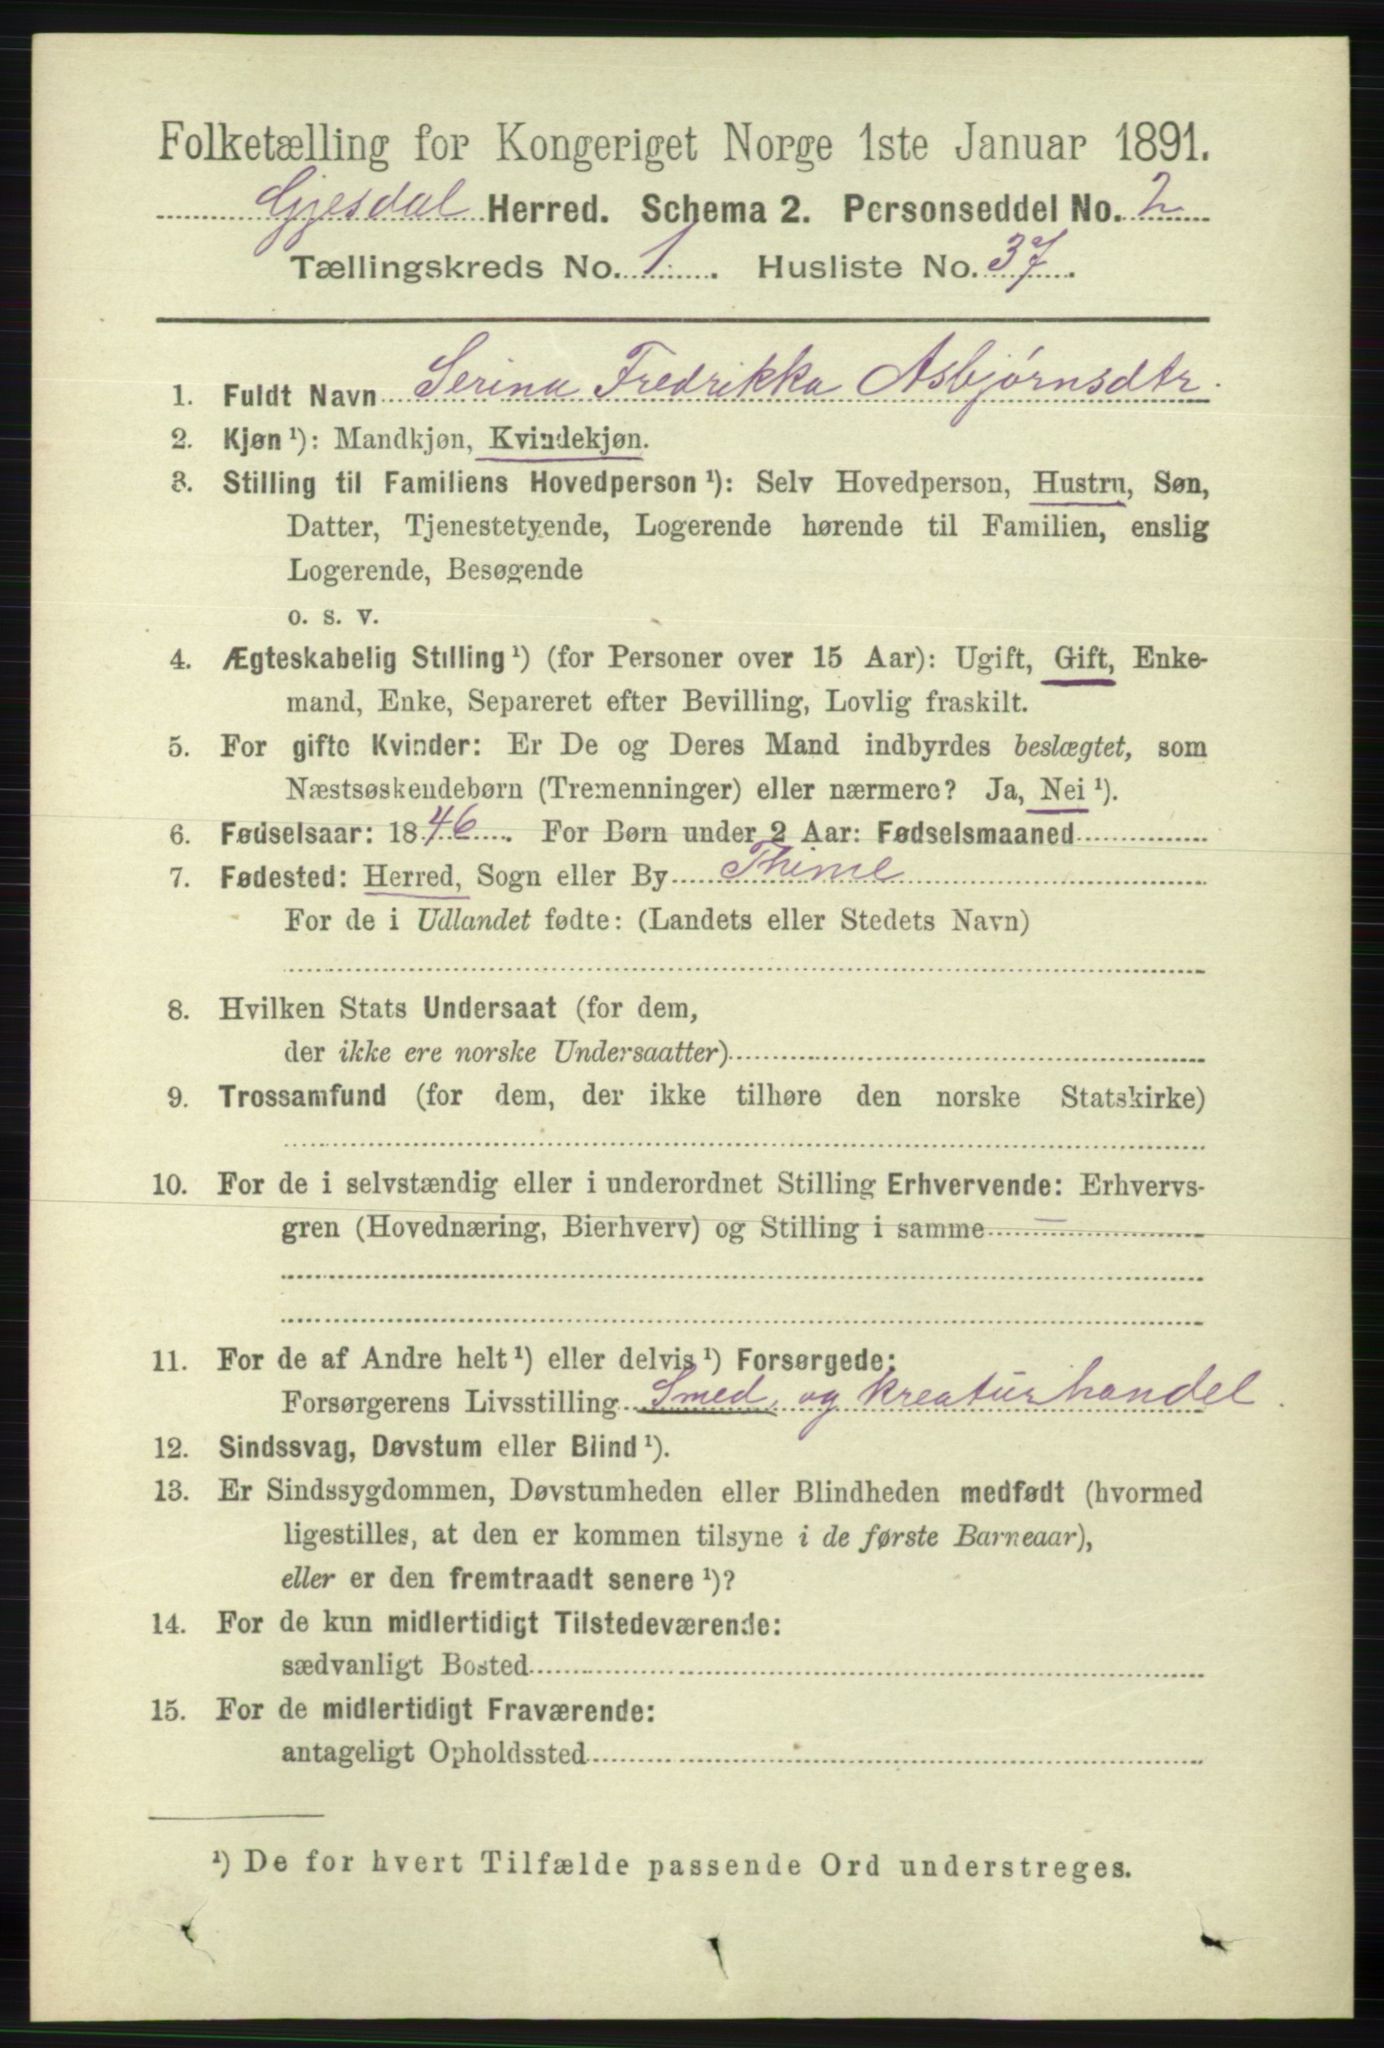 Folketælling for Kongeriget Norge 1ste Januar 1891.
Gjesdal Herred. Schema 2. Personseddel No. 2
Tællingskreds No. 1. Husliste No. 37.
1. Fuldt Navn Serina Fredrikka Asbjørnsdtr.
2. Kjøn ¹): Mandkjøn, Kvindekjøn.
3. Stilling til Familiens Hovedperson ¹): Selv Hovedperson, Hustru, Søn,
Datter, Tjenestetyende, Logerende hørende til Familien, enslig
Logerende, Besøgende
o. s. v.
4. Ægteskabelig Stilling ¹) (for Personer over 15 Aar): Ugift, Gift, Enke-
mand, Enke, Separeret efter Bevilling, Lovlig fraskilt.
5. For gifte Kvinder: Er De og Deres Mand indbyrdes beslægtet, som
Næstsøskendebørn (Tremenninger) eller nærmere? Ja, Nei ¹).
6. Fødselsaar: 1846. For Børn under 2 Aar: Fødselsmaaned
7. Fødested: Herred, Sogn eller By Thime
For de i Udlandet fødte: (Landets eller Stedets Navn)
8. Hvilken Stats Undersaat (for dem,
der ikke ere norske Undersaatter)
9. Trossamfund (for dem, der ikke tilhøre den norske Statskirke)
10. For de i selvstændig eller i underordnet Stilling Erhvervende: Erhvervs-
gren (Hovednæring, Bierhverv) og Stilling i samme —
11. For de af Andre helt ¹) eller delvis ¹) Forsørgede:
Forsørgerens Livsstilling Smed, og kreaturhandel.
12. Sindssvag, Døvstum eller Blind ¹).
13. Er Sindssygdommen, Døvstumheden eller Blindheden medfødt (hvormed
ligestilles, at den er kommen tilsyne i de første Barneaar),
eller er den fremtraadt senere ¹)?
14. For de kun midlertidigt Tilstedeværende:
sædvanligt Bosted
15. For de midlertidigt Fraværende:
antageligt Opholdssted
¹) De for hvert Tilfælde passende Ord understreges.